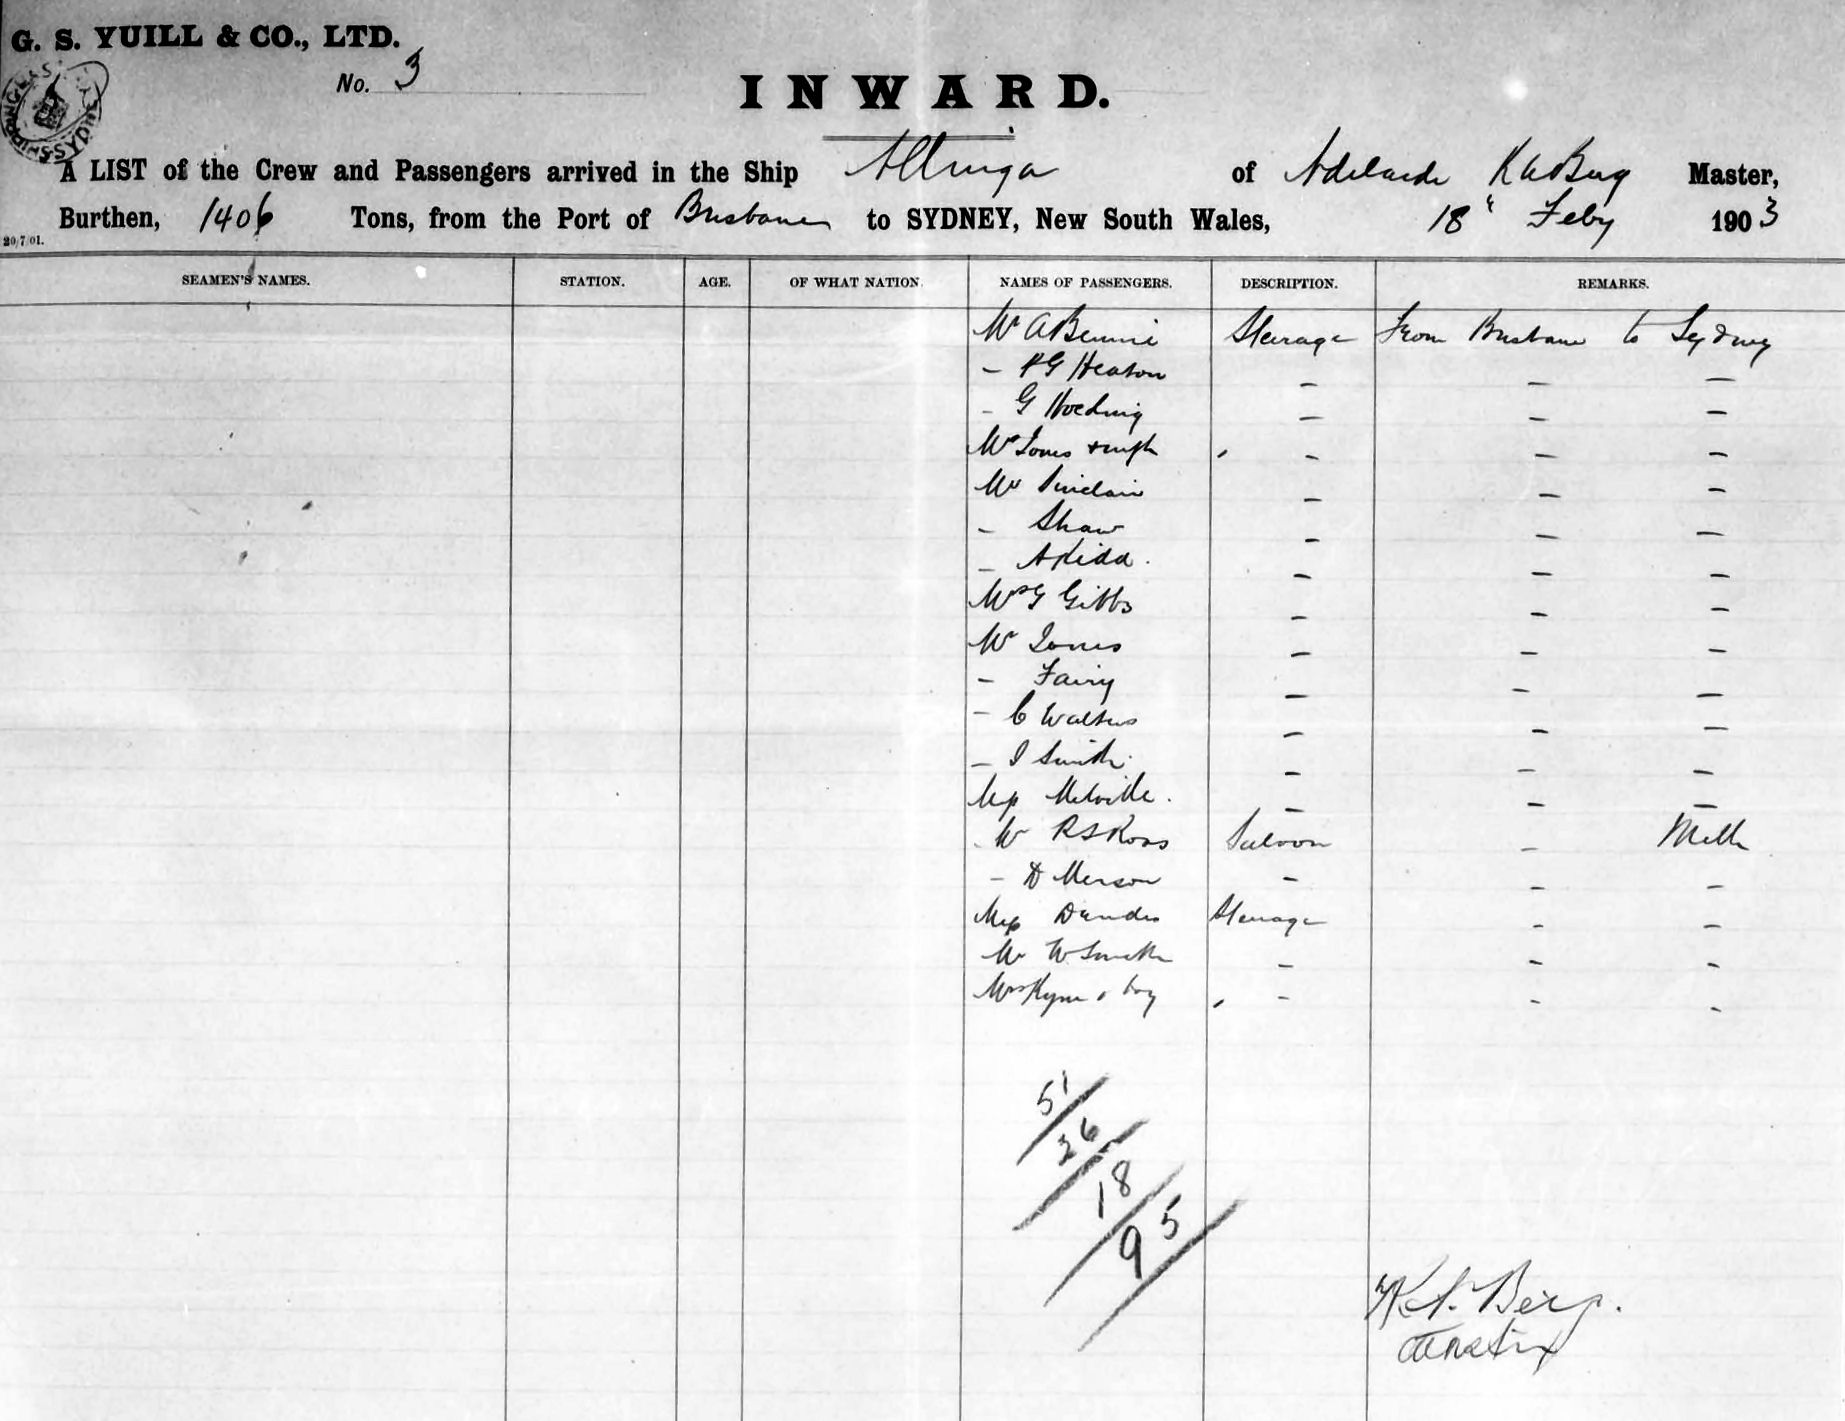 G. S. YUILL & CO., LTD.
No. 3
INWARD.
A LIST of the Crew and Passengers arrived in the Ship Allinga of Adelaide K A Berg Master,
Burthen, 1406 Tons, from the Port of Brisbane to SYDNEY, New South Wales, 18" Feby 1903
20/7/01.
SEAMEN'S NAMES. STATION. AGE. OF WHAT NATION. NAMES OF PASSENGERS. DESCRIPTION. REMARKS.
Mr A Bennie Steerage From Brisbane to Sydney
– P G Heaton – – –
– G – – –
Mrs Jones – – –
Mr Sinclair – – –
– Shaw – – –
– A Kidd. – – –
Mrs G Gibbs – – –
Mr Jones – – –
– Fairy – – –
– C Walters – – –
– J Smith. – – –
Miss Melville. – – –
Mr R S Ross Saloon – Melb
– D Merson – – –
Miss Steerage – –
Mr W Smith – – –
Mrs Kyne & boy – – –
51
26
18
95
K A. Berg.
Master